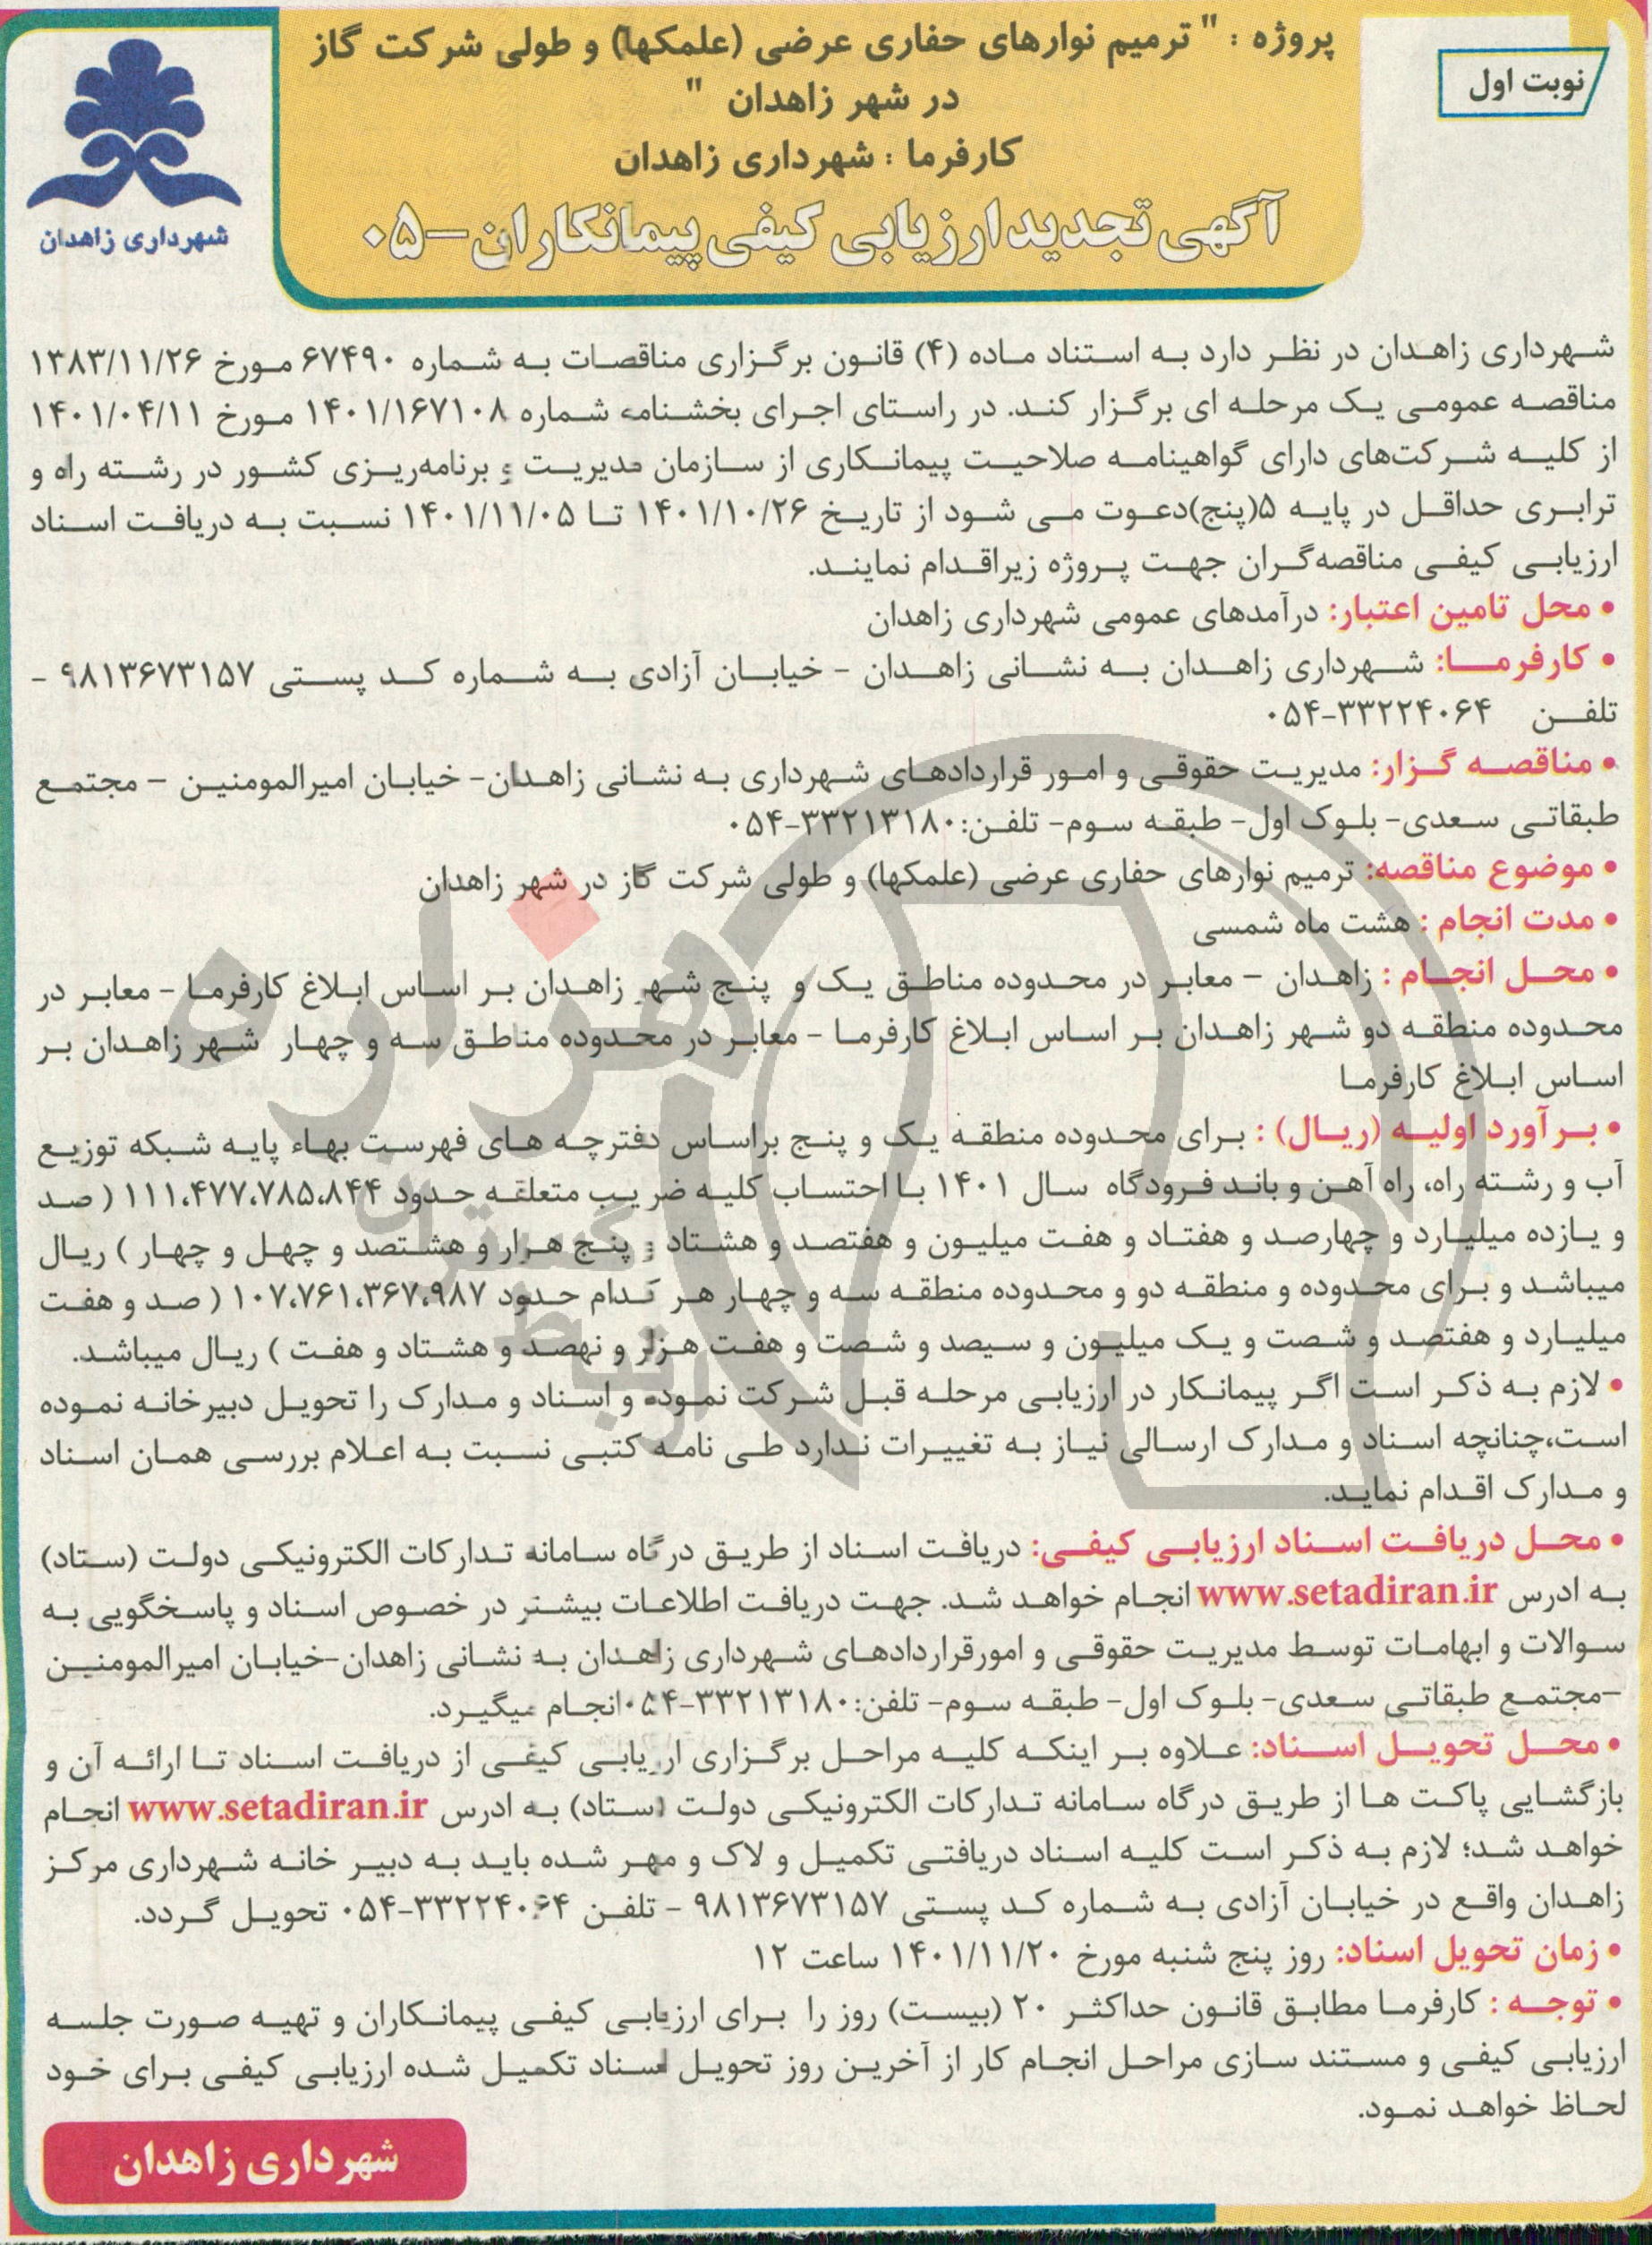 نوبت اول
پروژه : " ترمیم نوارهای حفاری عرضی (علمکها) و طولی شرکت گاز
در شهر زاهدان "
کارفرما : شهرداری زاهدان
آگهی تجدید ارزیابی کیفی پیمانکاران-۰۵
شهرداری زاهدان
شهرداری زاهدان در نظر دارد به استناد ماده (۴) قانون برگزاری مناقصات به شماره ۶۷۴۹۰ مورخ ۱۳۸۳/۱۱/۲۶
مناقصه عمومی یک مرحله ای برگزار کند. در راستای اجرای بخشنامه شماره ۱۴۰۱/۱۶۷۱۰۸ مورخ ۱۴۰۱/۰۴/۱۱
از کلیه شرکت‌های دارای گواهینامه صلاحیت پیمانکاری از سازمان مدیریت و برنامه‌ریزی کشور در رشته راه و
ترابری حداقل در پایه ۵(پنج)دعوت می شود از تاریخ ۱۴۰۱/۱۰/۲۶ تا ۱۴۰۱/۱۱/۰۵ نسبت به دریافت اسناد
ارزیابی کیفی مناقصه‌گران جهت پروژه زیراقدام نمایند.
• محل تامین اعتبار: درآمدهای عمومی شهرداری زاهدان
• کارفرما: شهرداری زاهدان به نشانی زاهدان - خیابان آزادی به شماره کد پستی ۹۸۱۳۶۷۳۱۵۷ -
تلفن ۰۵۴-۳۳۲۲۴۰۶۴
• مناقصه گزار: مدیریت حقوقی و امور قراردادهای شهرداری به نشانی زاهدان- خیابان امیرالمومنین - مجتمع
طبقاتی سعدی- بلوک اول- طبقه سوم- تلفن:۰۵۴-۳۳۲۱۳۱۸۰
• موضوع مناقصه: ترمیم نوارهای حفاری عرضی (علمکها) و طولی شرکت گاز در شهر زاهدان
• مدت انجام : هشت ماه شمسی
• محل انجام : زاهدان - معابر در محدوده مناطق یک و پنج شهر زاهدان بر اساس ابلاغ کارفرما - معابر در
محدوده منطقه دو شهر زاهدان بر اساس ابلاغ کارفرما - معابر در محدوده مناطق سه و چهار شهر زاهدان بر
اساس ابلاغ کارفرما
• برآورد اولیه (ریال) : برای محدوده منطقه یک و پنج براساس دفترچه های فهرست بهاء پایه شبکه توزیع
آب و رشته راه، راه آهن و باند فرودگاه سال ۱۴۰۱ با احتساب کلیه ضریب متعلقه حدود ۱۱۱،۴۷۷،۷۸۵،۸۴۴ ( صد
و یازده میلیارد و چهارصد و هفتاد و هفت میلیون و هفتصد و هشتاد و پنج هزار و هشتصد و چهل و چهار ) ریال
میباشد و برای محدوده و منطقه دو و محدوده منطقه سه و چهار هر کدام حدود ۱۰۷،۷۶۱،۳۶۷،۹۸۷ ( صد و هفت
میلیارد و هفتصد و شصت و یک میلیون و سیصد و شصت و هفت هزار و نهصد و هشتاد و هفت ) ریال میباشد.
• لازم به ذکر است اگر پیمانکار در ارزیابی مرحله قبل شرکت نموده و اسناد و مدارک را تحویل دبیرخانه نموده
است،چنانچه اسناد و مدارک ارسالی نیاز به تغییرات ندارد طی نامه کتبی نسبت به اعلام بررسی همان اسناد
و مدارک اقدام نماید.
• محل دریافت اسناد ارزیابی کیفی: دریافت اسناد از طریق درگاه سامانه تدارکات الکترونیکی دولت (ستاد)
به ادرس www.setadiran.ir انجام خواهد شد. جهت دریافت اطلاعات بیشتر در خصوص اسناد و پاسخگویی به
سوالات و ابهامات توسط مدیریت حقوقی و امورقراردادهای شهرداری زاهدان به نشانی زاهدان-خیابان امیرالمومنین
-مجتمع طبقاتی سعدی- بلوک اول- طبقه سوم- تلفن:۰۵۴-۳۳۲۱۳۱۸۰انجام میگیرد.
• محل تحویل اسناد: علاوه بر اینکه کلیه مراحل برگزاری ارزیابی کیفی از دریافت اسناد تا ارائه آن و
بازگشایی پاکت ها از طریق درگاه سامانه تدارکات الکترونیکی دولت (ستاد) به ادرس www.setadiran.ir انجام
خواهد شد؛ لازم به ذکر است کلیه اسناد دریافتی تکمیل و لاک و مهر شده باید به دبیر خانه شهرداری مرکز
زاهدان واقع در خیابان آزادی به شماره کد پستی ۹۸۱۳۶۷۳۱۵۷ - تلفن ۰۵۴-۳۳۲۲۴۰۶۴ تحویل گردد.
• زمان تحویل اسناد: روز پنج شنبه مورخ ۱۴۰۱/۱۱/۲۰ ساعت ۱۲
• توجه : کارفرما مطابق قانون حداکثر ۲۰ (بیست) روز را برای ارزیابی کیفی پیمانکاران و تهیه صورت جلسه
ارزیابی کیفی و مستند سازی مراحل انجام کار از آخرین روز تحویل اسناد تکمیل شده ارزیابی کیفی برای خود
لحاظ خواهد نمود.
شهرداری زاهدان
هزاره